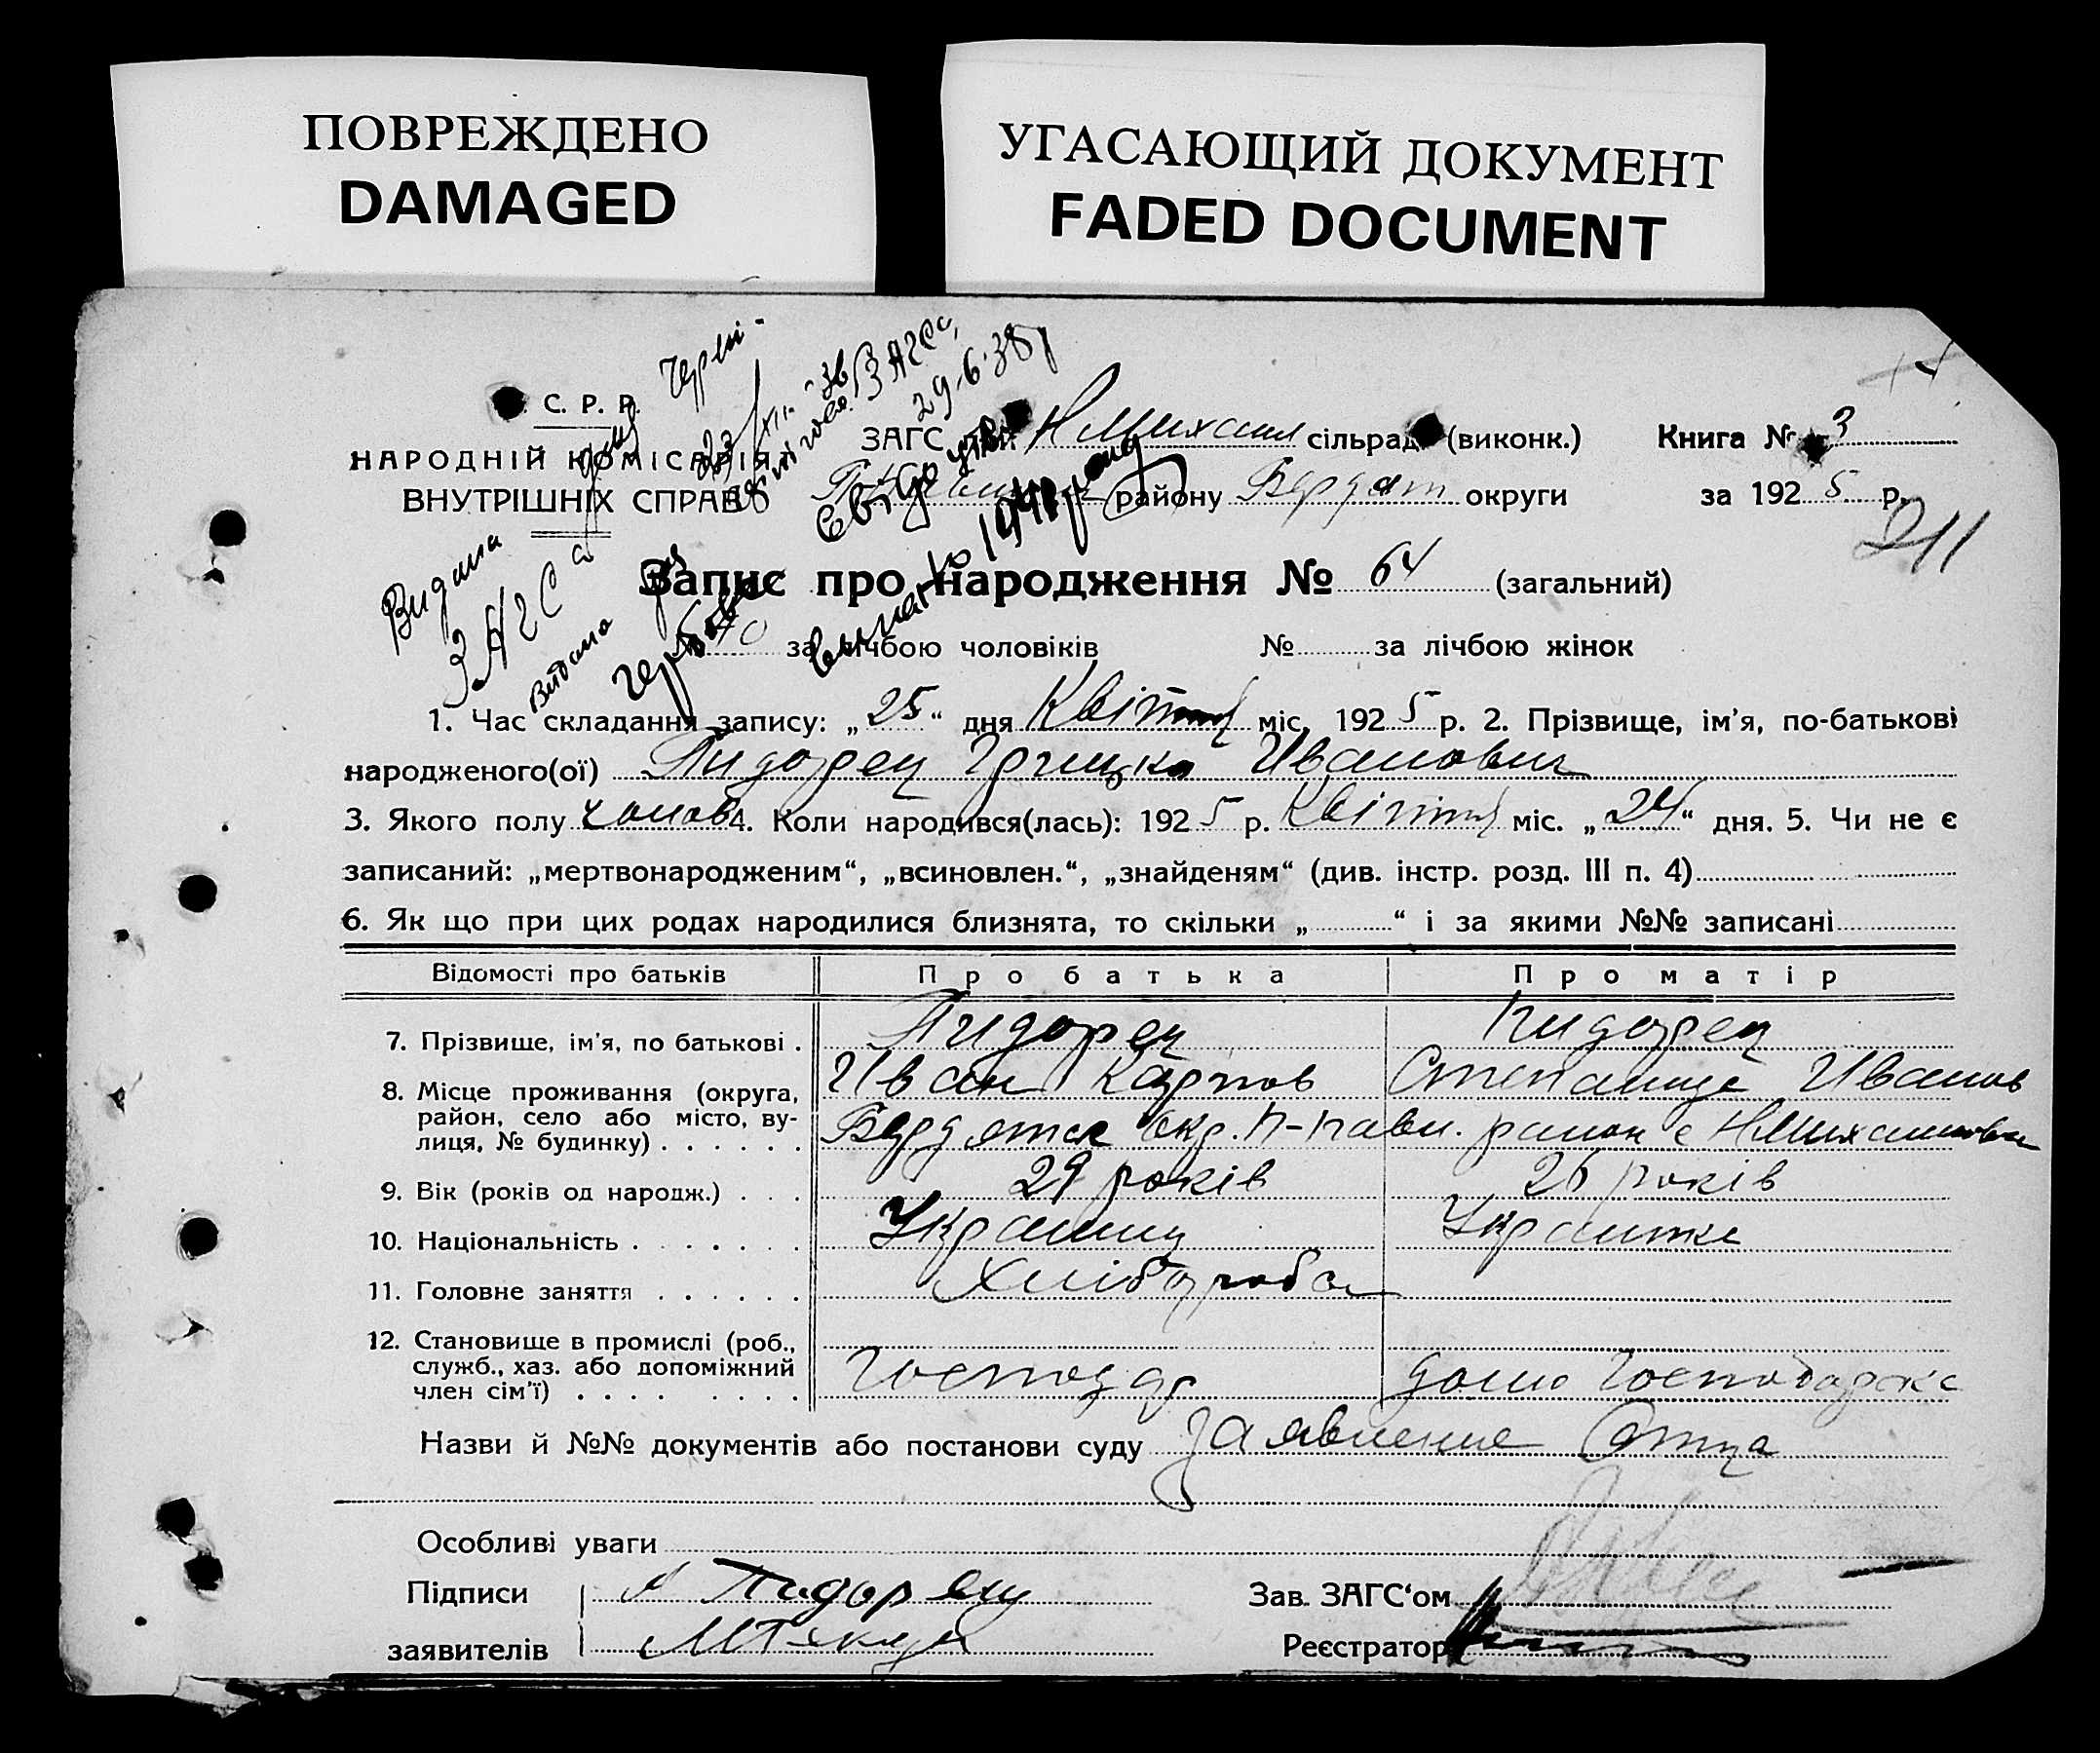 ПОВРЕЖДЕНО
DAMAGED
УГАСАЮЩИЙ ДОКУМЕНТ
FADED DOCUMENT
С. Р. Р.
НАРОДНІЙ КОМІСАРІЯТ
ВНУТРІШНІХ СПРАВ
29.6.38р
ЗАГС при НМихаил сільраді (виконк.) Книга № 3
району Бердят округи за 1925 р.
211
Видана
ЗАГС
Видано
Запис про народження № 64 (загальний)
№ 40 за лічбою чоловіків № за лічбою жінок
1. Час складання запису: „25“ дня Квітня міс. 1925 р. 2. Прізвище, ім'я, по-батькові
народженого(ої) Пидорец Грицько Иванович
3. Якого полу чолов 4. Коли народився(лась): 1925 р. Квітня міс. „24“ дня. 5. Чи не є
записаний: „мертвонародженим“, „всиновлен.“, „знайденям“ (див. інстр. розд. III п. 4)
6. Як що при цих родах народилися близнята, то скільки „ “ і за якими №№ записані
Відомості про батьків Про батька Про матір
7. Прізвище, ім'я, по батькові . Пидорец Пидорец
Иван Карпов Степанида Иванов
8. Місце проживання (округа, район, село або місто, вулиця, № будинку) Бердятск окр. П-Павл. район с НМихайловка
9. Вік (років од народж.) 29 років 26 років
10. Національність Украинц Украинка
11. Головне заняття Хлібороба
12. Становище в промислі (роб., служб., хаз. або допоміжний член сім'ї) Господар домо Господарка
Назви й №№ документів або постанови суду заявление Отца
Особливі уваги
Підписи Пидорец Зав. ЗАГС‘ом
заявителів Реєстратор